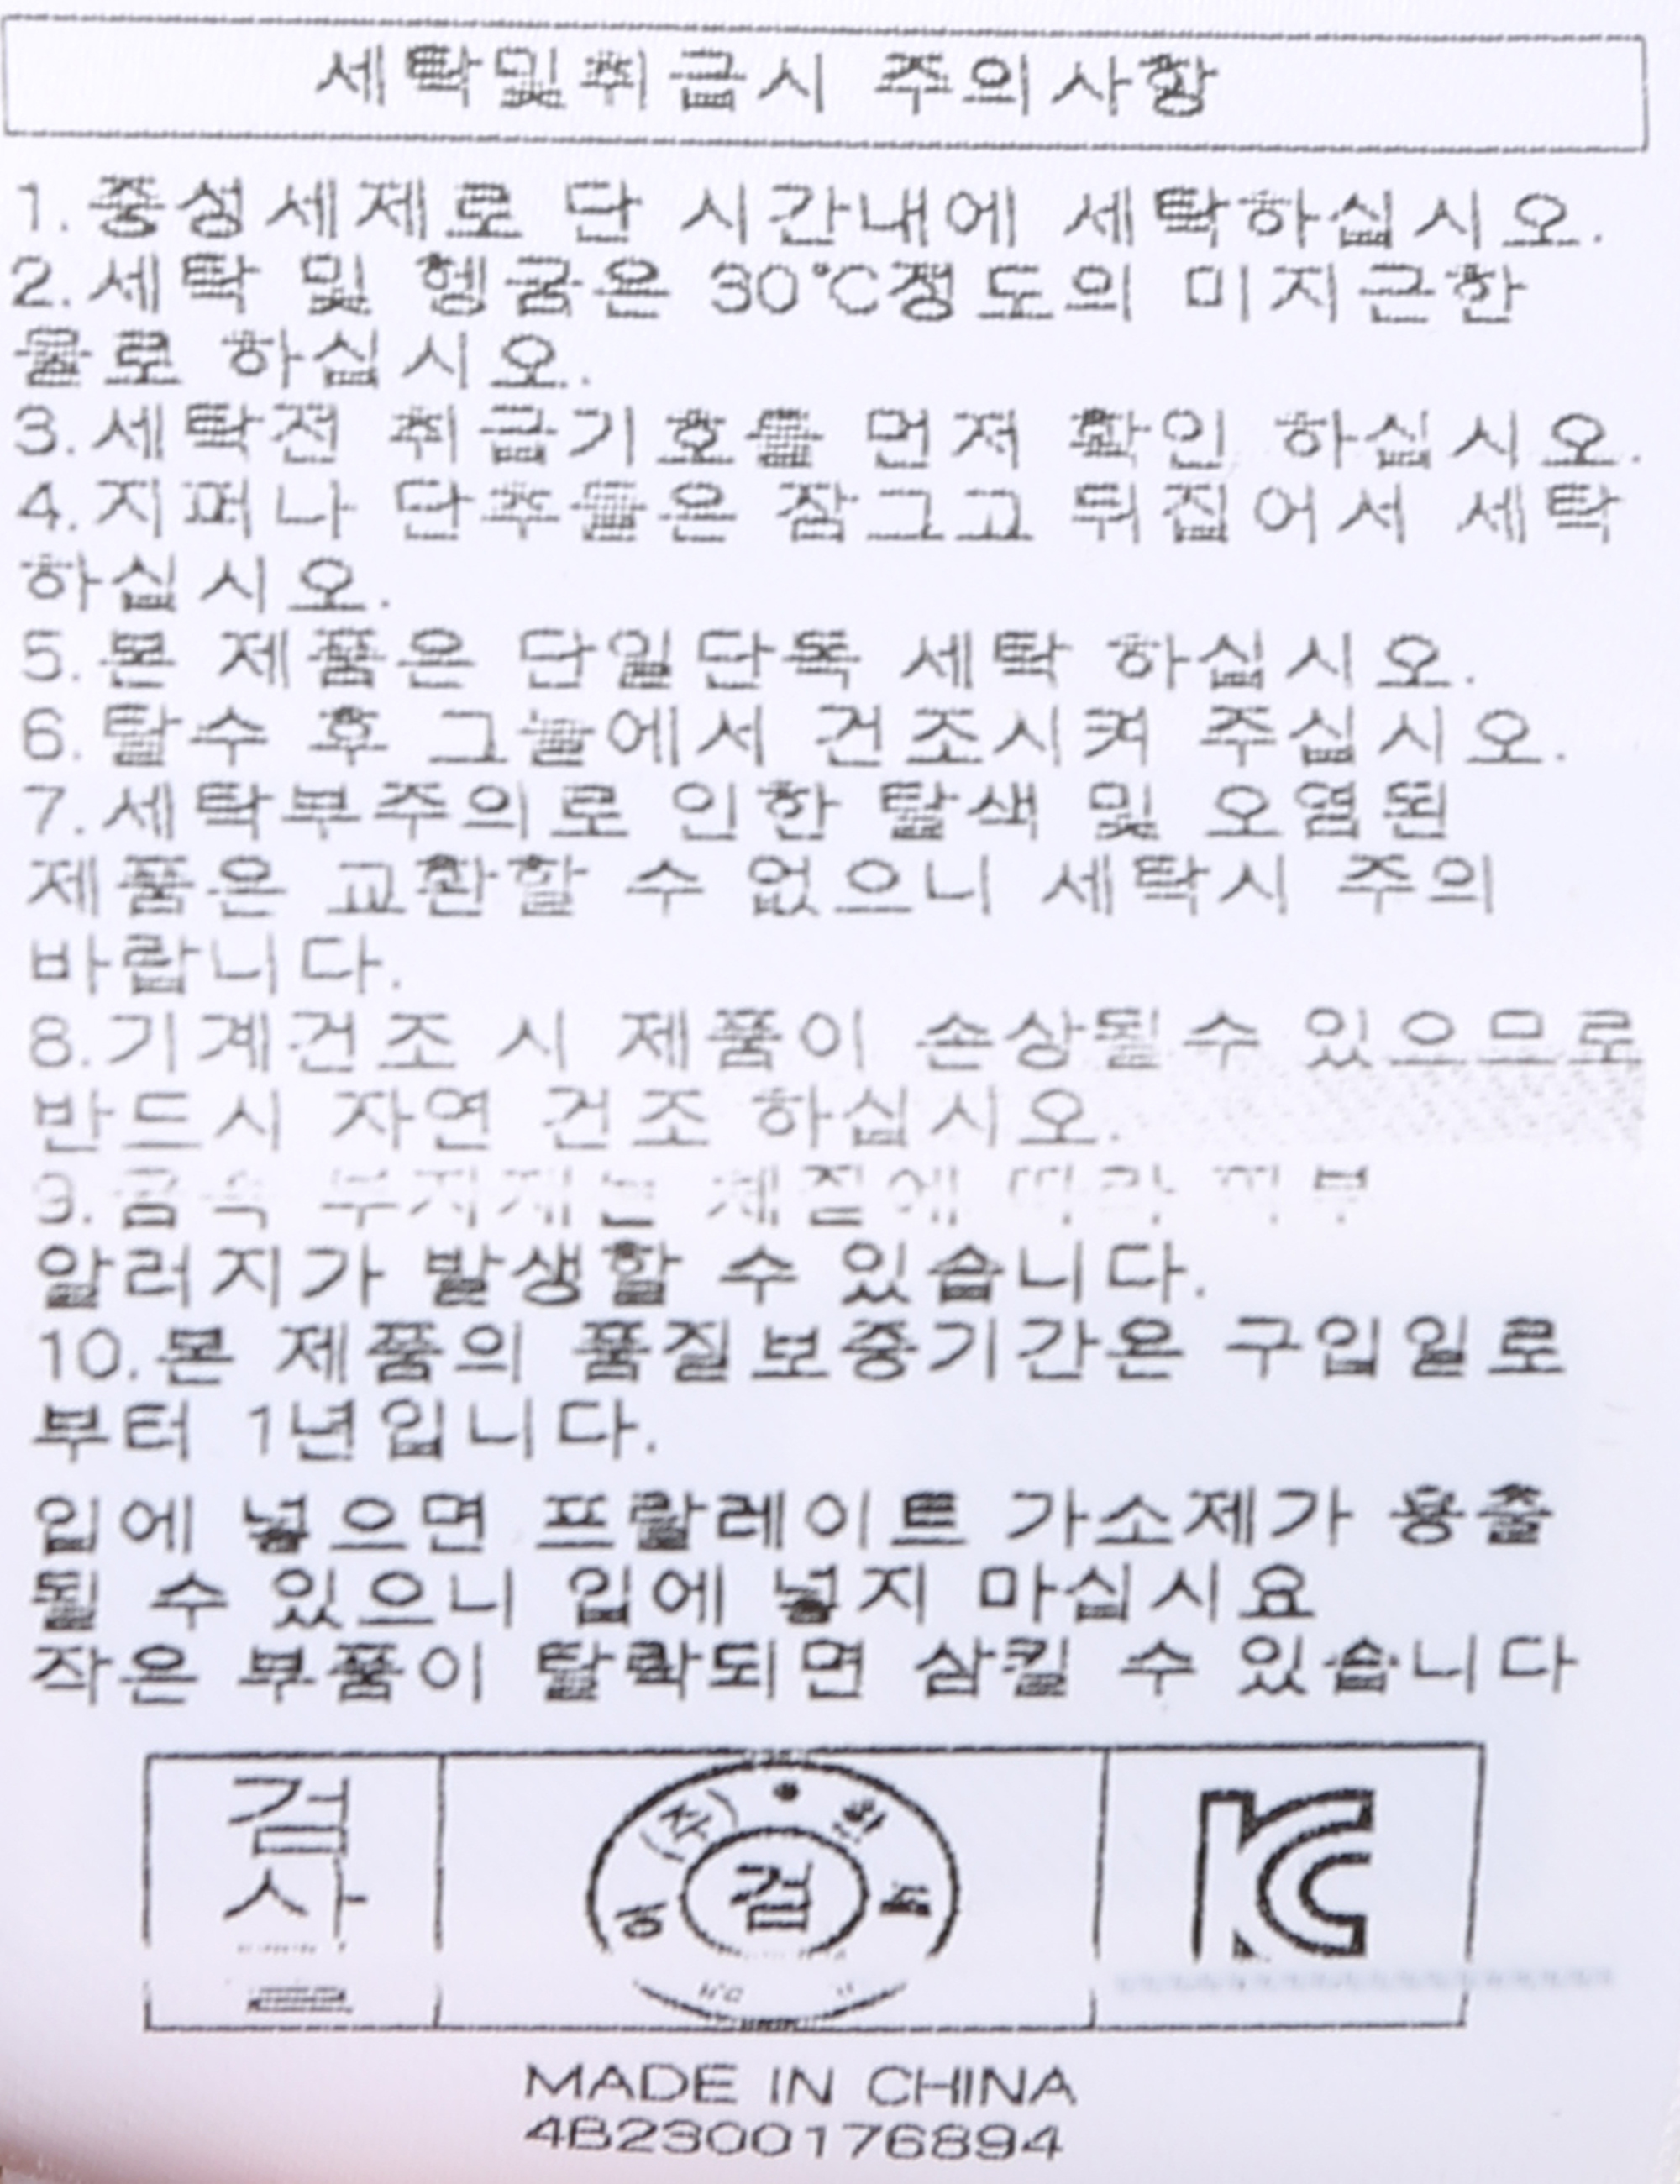 세탁및취급시 주의사항
1.중성세제로 단 시간내에 세탁하십시오.
2.세탁 및 헹굼은 30℃정도의 미지근한
물로 하십시오.
3.세탁전 취급기호를 먼저 확인 하십시오.
4.지퍼나 단추들은 잠그고 뒤집어서 세탁
하십시오.
5.본 제품은 단일단독 세탁 하십시오.
6.탈수 후 그늘에서 건조시켜 주십시오.
7.세탁부주의로 인한 탈색 및 오염된
제품은 교환할 수 없으니 세탁시 주의
바랍니다.
8.기계건조 시 제품이 손상될수 있으므로
반드시 자연 건조 하십시오.
9.금속 부자재는 체질에 따라 피부
알러지가 발생할 수 있습니다.
10.본 제품의 품질보증기간은 구입일로
부터 1년입니다.
입에 넣으면 프탈레이트 가소제가 용출
될 수 있으니 입에 넣지 마십시요
작은 부품이 탈락되면 삼킬 수 있습니다
검
사
(주)
검
KC
MADE IN CHINA
4B2300176894